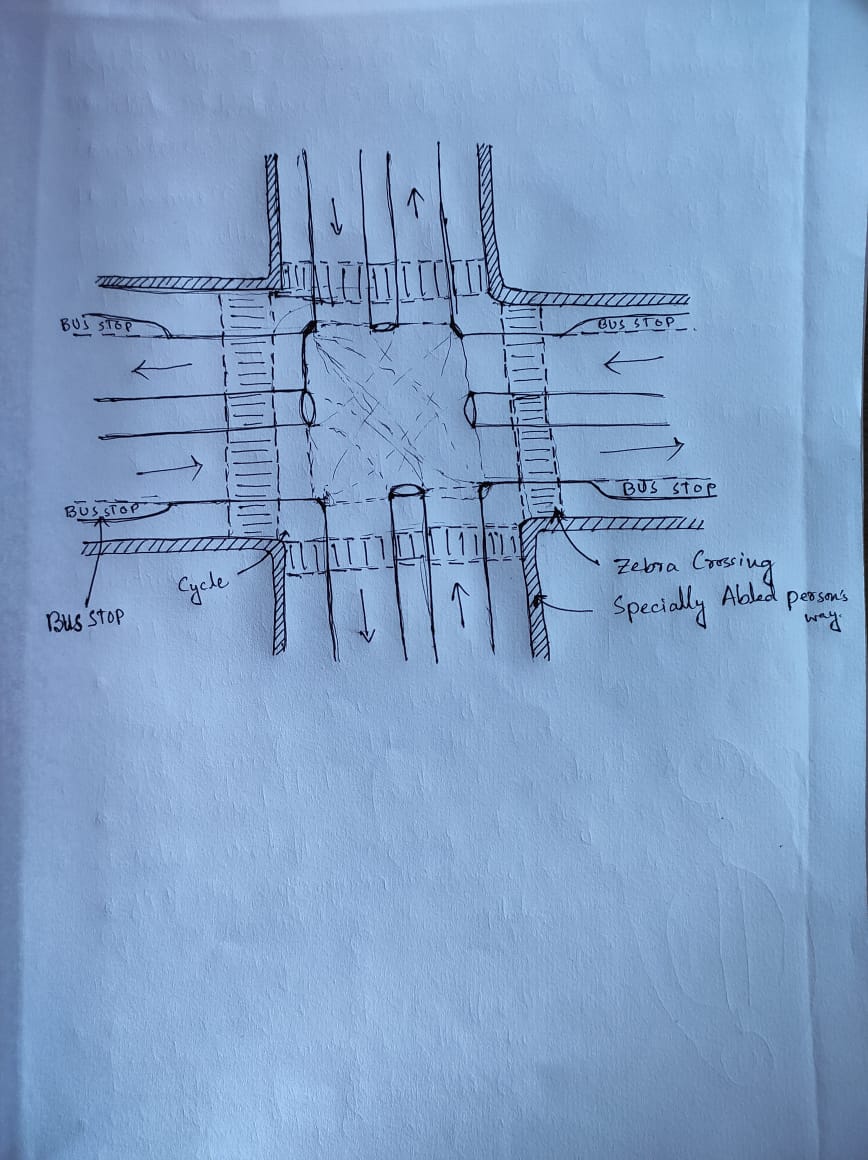 BUS STOP
BUS STOP
BUS STOP
BUS STOP
Cycle
Zebra Crossing
Bus STOP
Specially Abled person's
way.